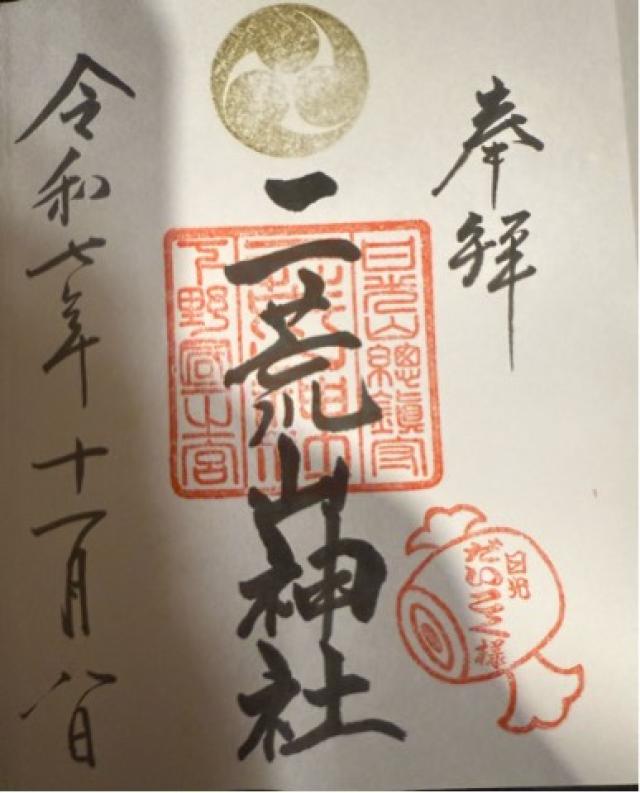 奉拝
日光山總鎮守
二荒山神社
下野國一之宮
日光
だいこく様
令和七年十一月八日